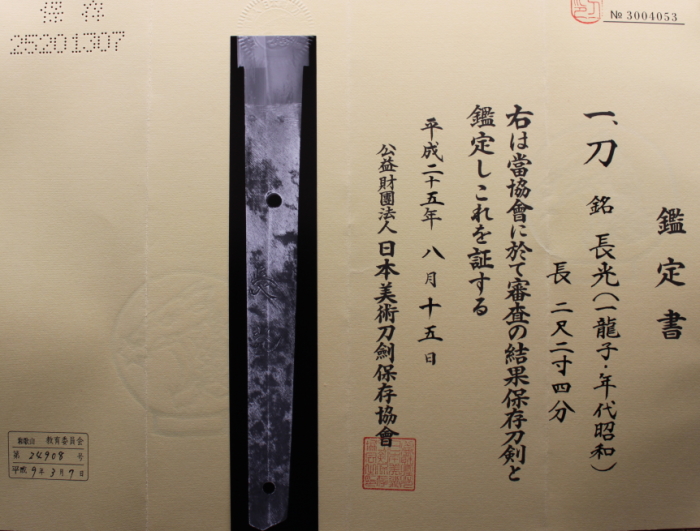 鑑定書
一、刀 銘 長光(一龍子・年代昭和)
長 二尺二寸四分
右は當協會に於て審査の結果保存刀剣と
鑑定しこれを証する
平成二十五年 八月 十五日
公益財團法人 日本美術刀劍保存協會
№ 3004053
保存
25201307
長光
和歌山 教育委員会
第 24908 号
平成 9年 3月 7日